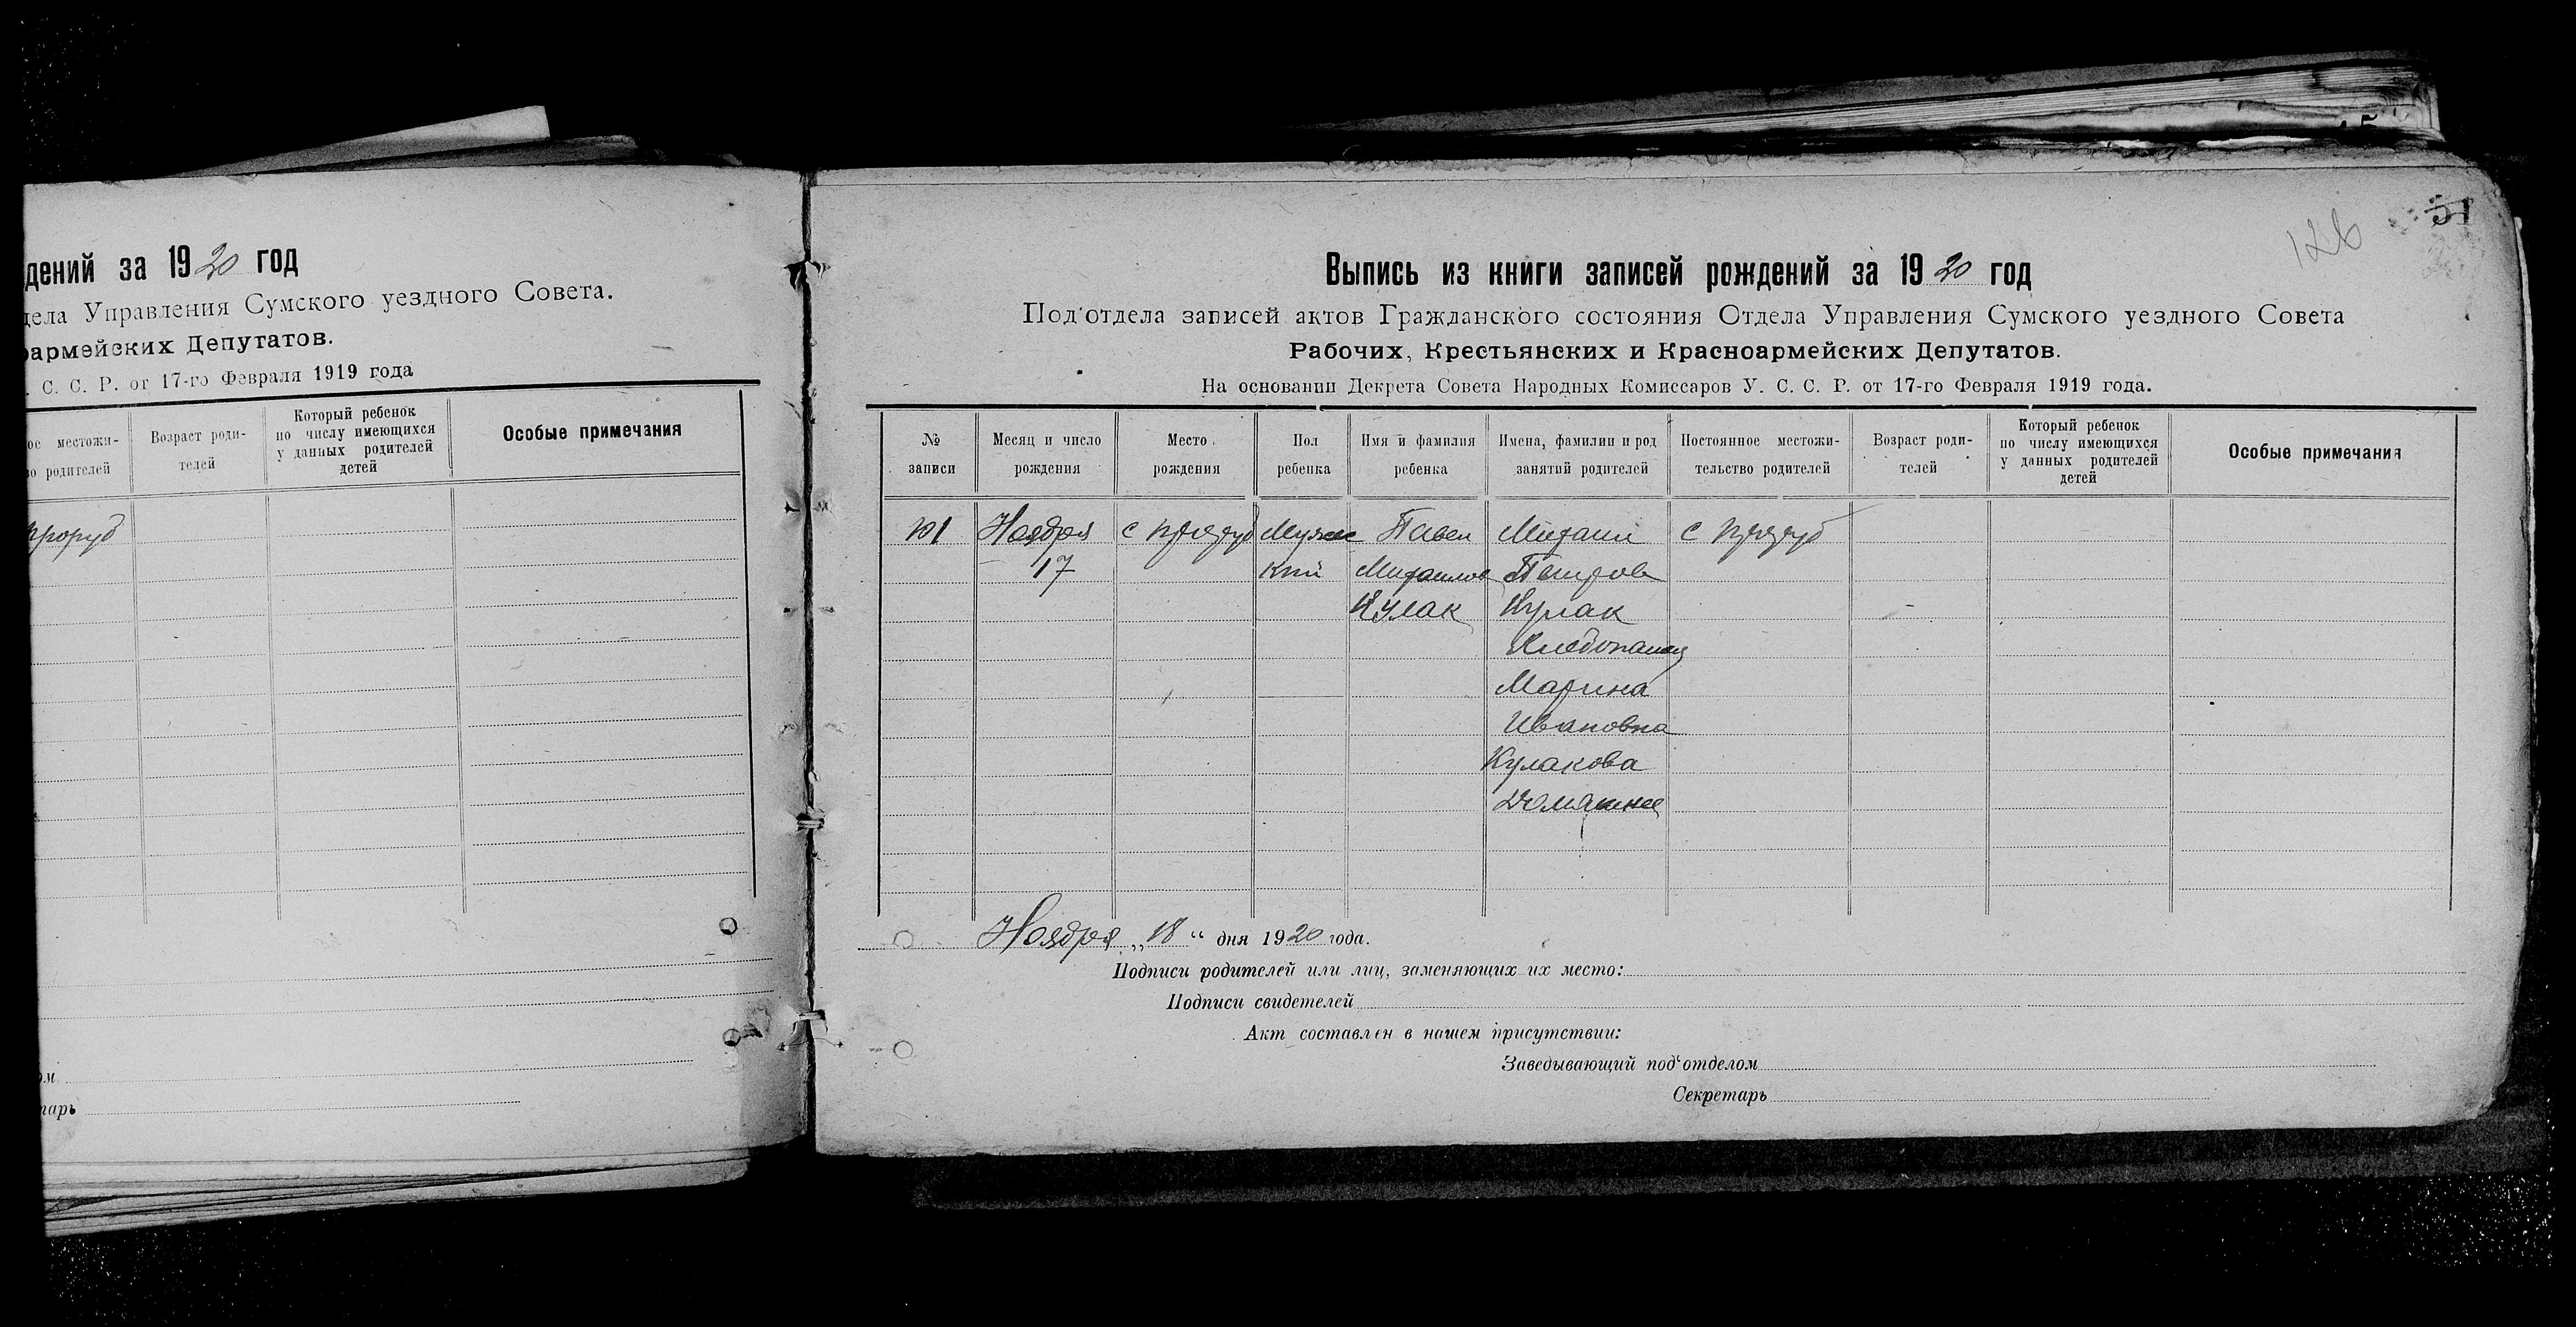 дений за 1920 год
дела Управления Сумского уездного Совета.
оармейских Депутатов.
. С. С. Р. от 17-го Февраля 1919 года
ое местожи-
во родителей
Возраст роди-
телей
Который ребенок
по числу имеющихся
у данных родителей
детей
Особые примечания
Проруб
ом
тарь
51
126
Выпись из книги записей рождений за 1920 год
Под'отдела записей актов Гражданского состояния Отдела Управления Сумского уездного Совета
Рабочих, Крестьянских и Красноармейских Депутатов.
На основании Декрета Совета Народных Комиссаров У. С. С. Р. от 17-го Февраля 1919 года.
№
записи
Месяц и число
рождения
Место
рождения
Пол
ребенка
Имя и фамилия
ребенка
Имена, фамилии и род
занятий родителей
Постоянное местожи-
тельство родителей
Возраст роди-
телей
Который ребенок
по числу имеющихся
у данных родителей
детей
Особые примечания
101 Ноября с Проруб Мужс Павел Михаил с Проруб
17 кий Михаилов Петров
Кулак Кулак
Хлебопашец
Марина
Ивановна
Кулакова
Домашнее
Ноября „18“ дня 1920 года.
Подписи родителей или лиц, заменяющих их место:
Подписи свидетелей
Акт составлен в нашем присутствии:
Заведывающий под'отделом
Секретарь